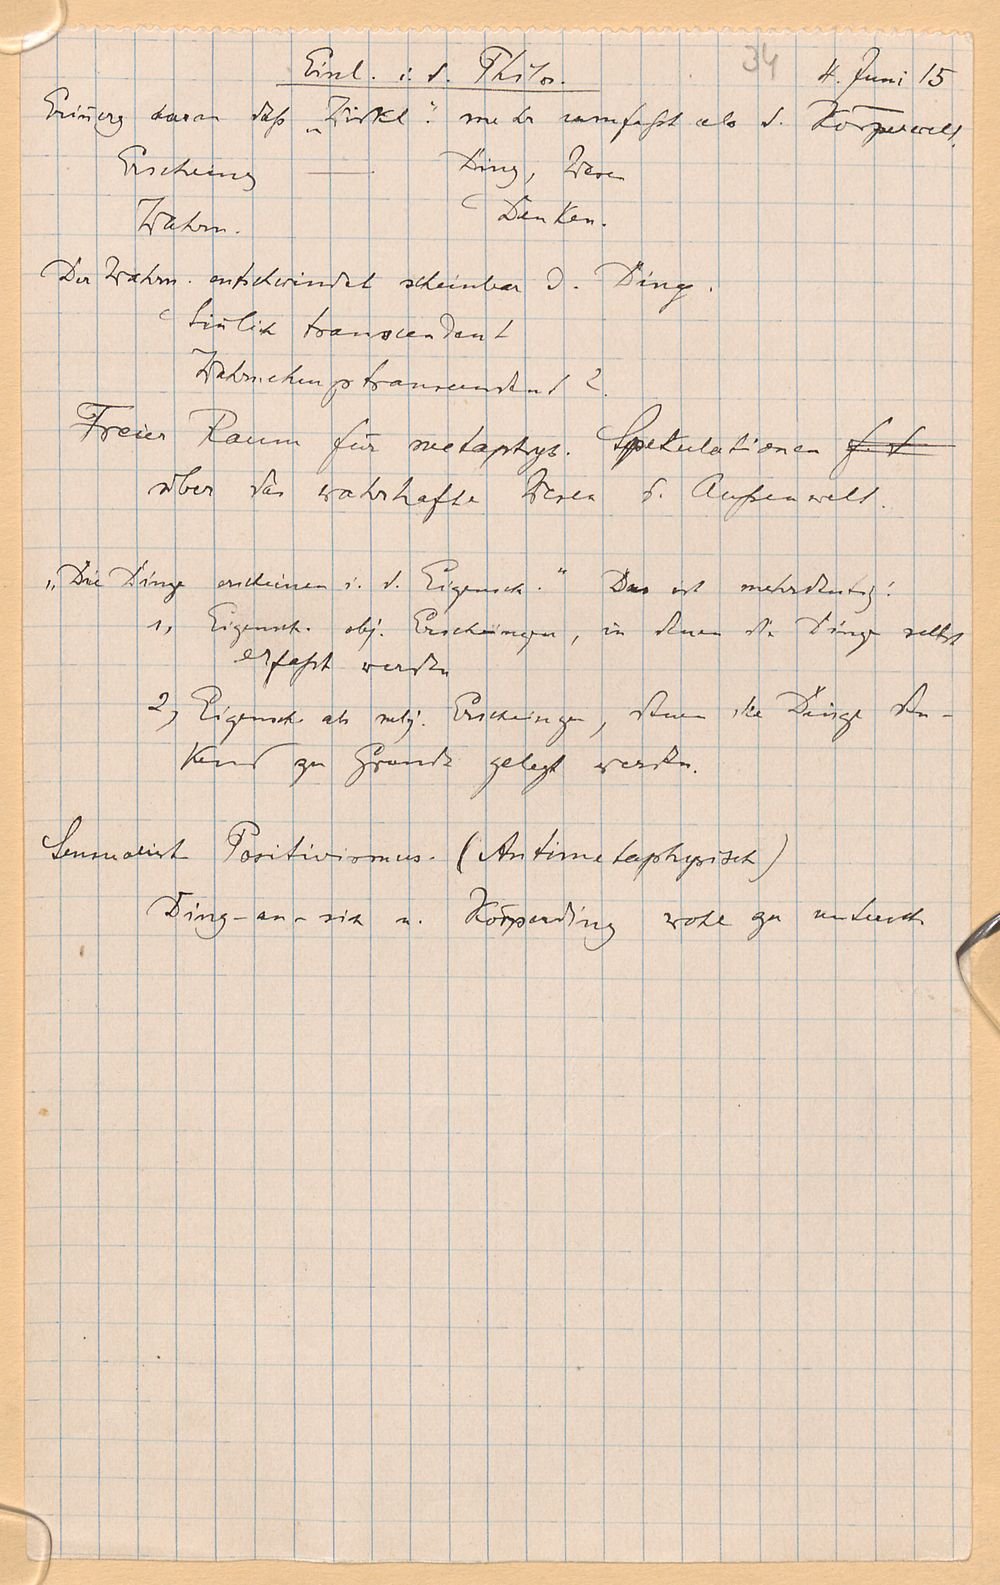 34
Einl. i. d. Philos. 4. Juni 15
Erinerg daran daß „Wirkl." mehr umfaßt als d. Körperwelt.
Erscheing — Ding, Wesen
Wahrn. Denken.
Der Wahrn. entschwindet scheinbar d. Ding.
Sinlich transcendent
Wahrnehmgstranscendent?
Freier Raum für metaphys. Spekulationen
über das wahrhafte Wesen d. Außenwelt.
„Die Dinge erscheinen i. d. Eigensch." Das ist mehrdeutig:
1, Eigensch. obj. Erscheinungen, in denen die Dinge selbst
erfaßt werden
2, Eigensch. als subj. Erscheingen, denen die Dinge den-
kend zu Grunde gelegt werden.
Sensualist. Positivismus. (Antimetaphysisch)
Ding-an-sich u. Körperding wohl zu untersch.